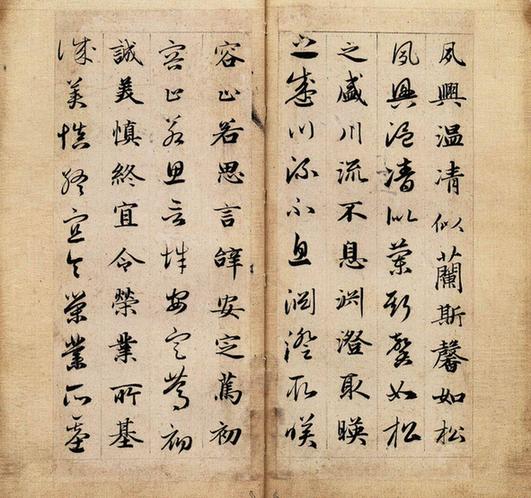 夙興温凊似蘭斯馨如松
夙興温凊似蘭斯馨如松
之盛川流不息渊澄取暎
之盛川流不息渊澄取暎
容止若思言辭安定篤初
容止若思言辭安定篤初
誠美慎終宜令榮業所基
誠美慎終宜令榮業所基